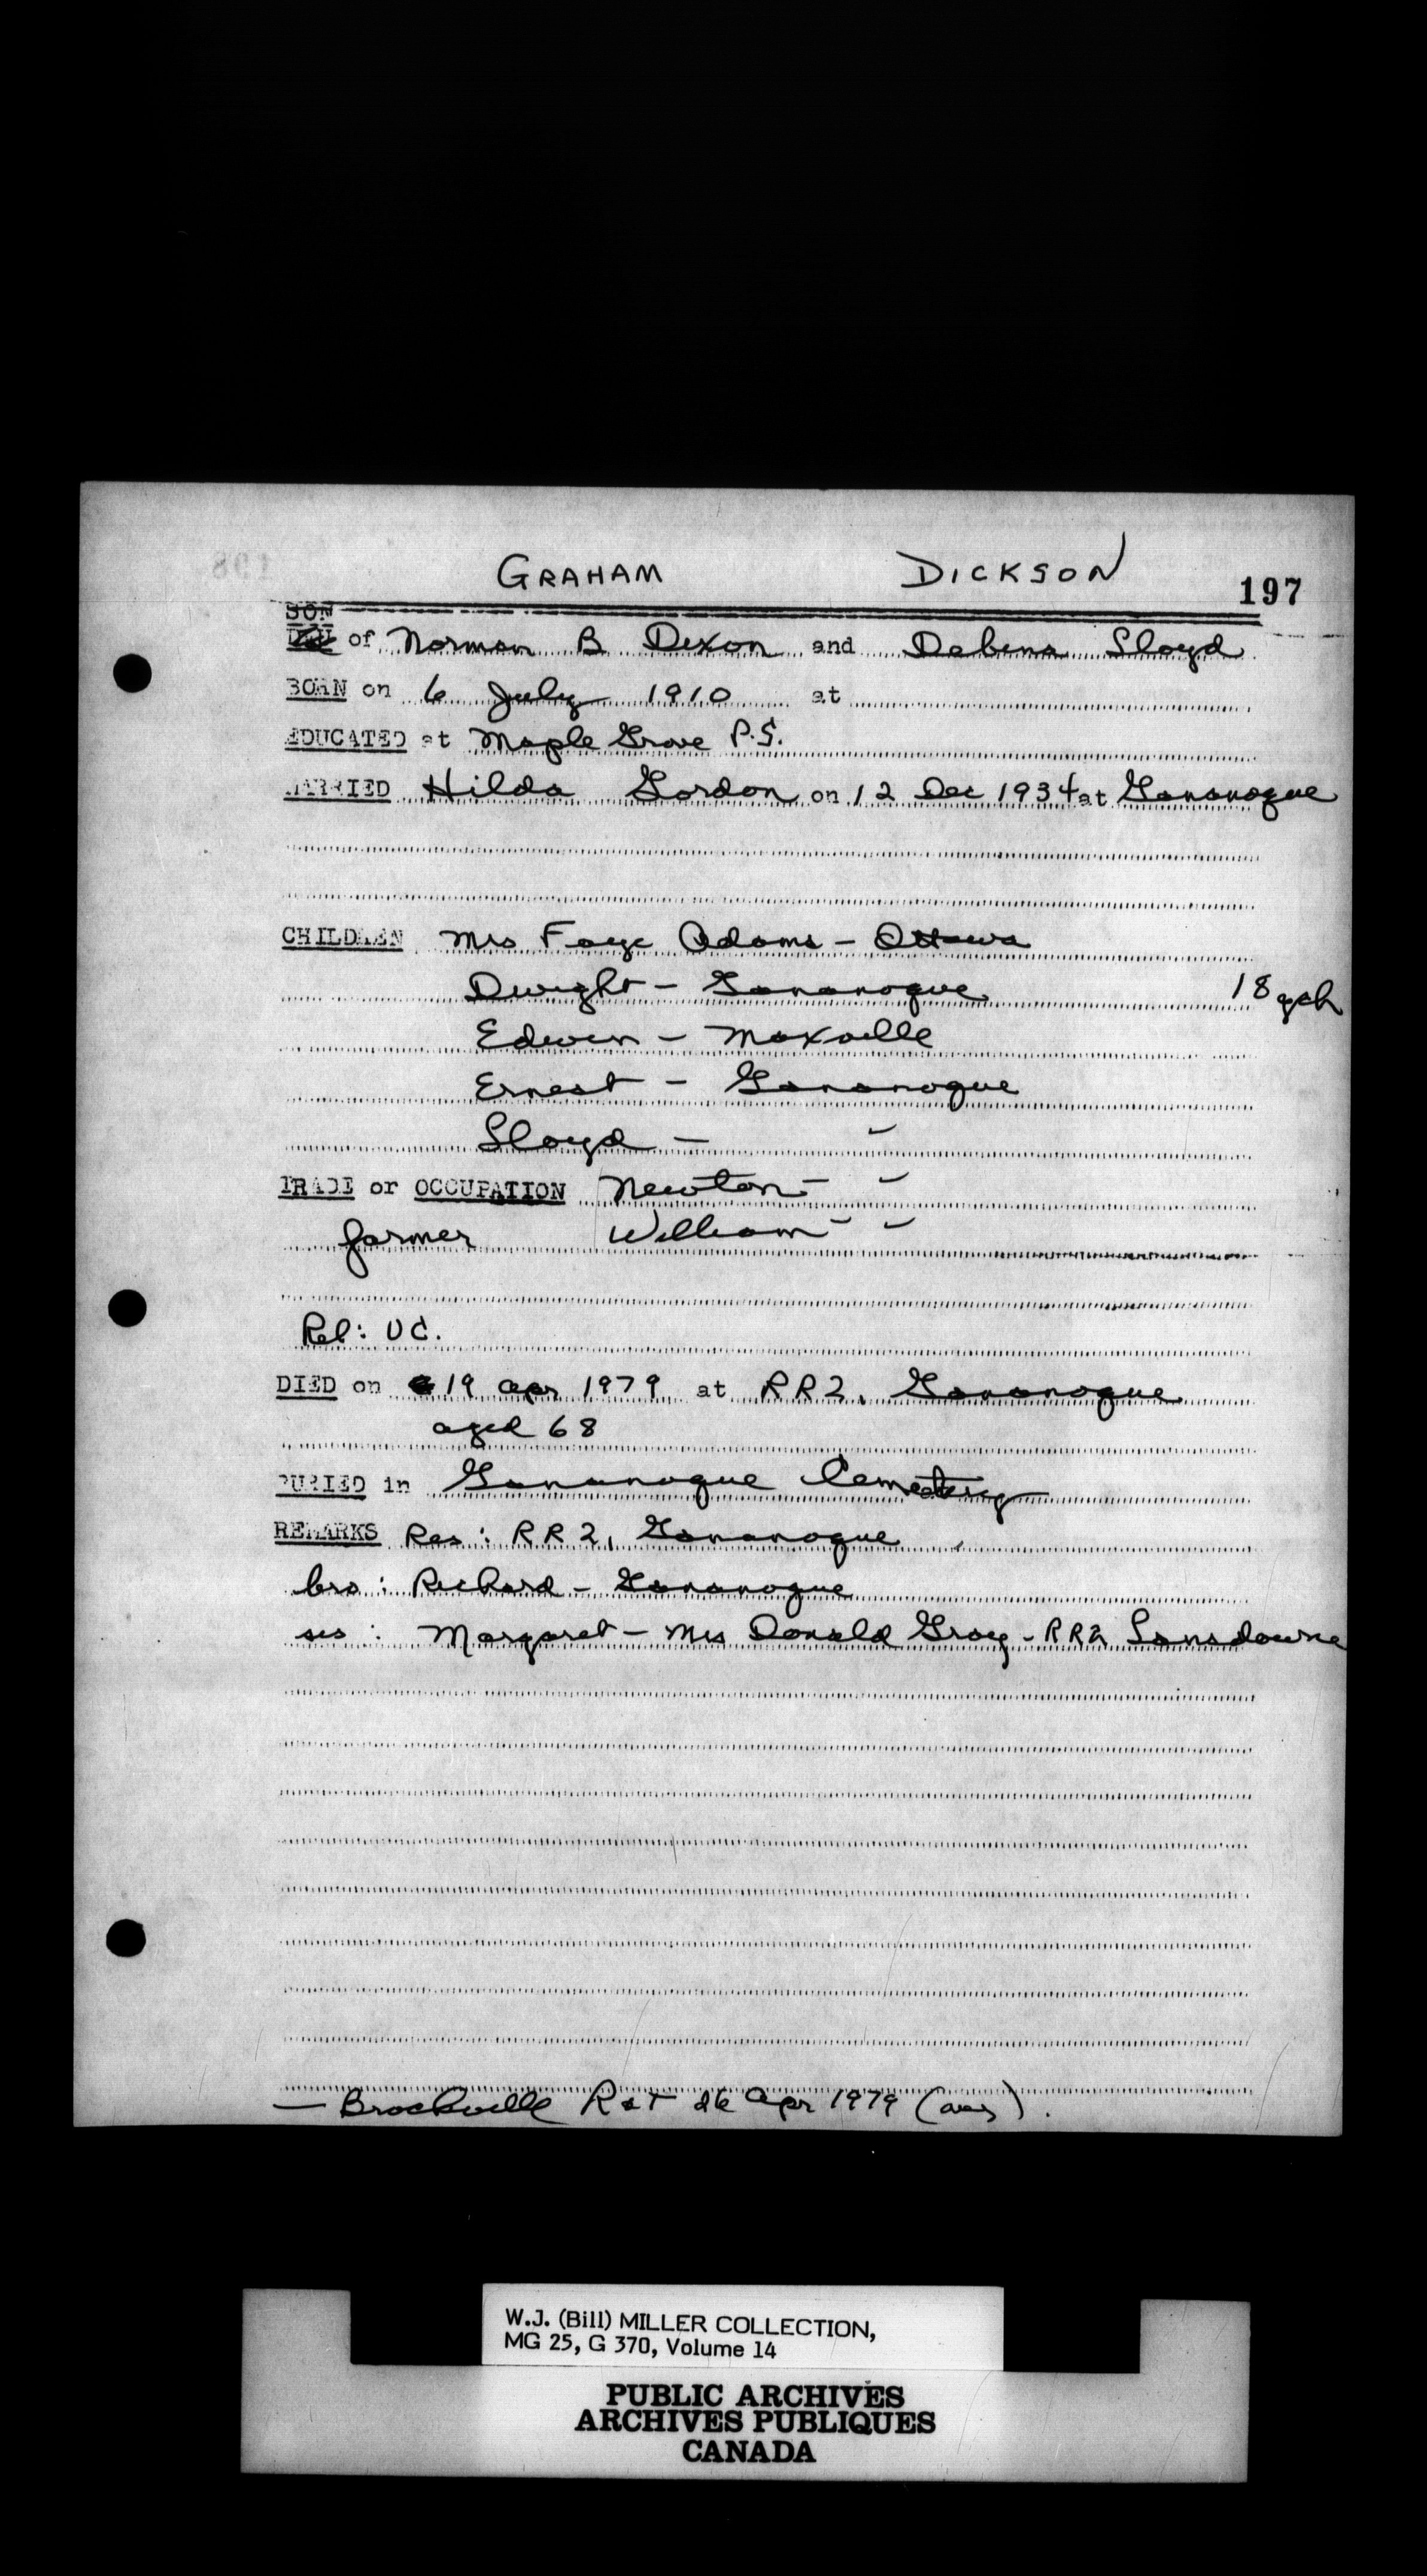 GRAHAM DICKSON 197
SON
DAU of Norman B Dixon and Debena Lloyd
BORN on 6 July 1910 at
EDUCATED at Maple Grove P.S.
MARRIED Hilda Gordon on 12 Dec 1934 at Gananoque
CHILDREN Mrs Faye Adams - Ottawa
Dwight - Gananoque 18 gch
Edwin - Maxville
Ernest - Gananoque
Lloyd - "
TRADE or OCCUPATION Newton - "
farmer William - "
Rel: UC.
DIED on 19 Apr 1979 at RR2, Gananoque
aged 68
BURIED in Gananoque Cemetery
REMARKS Res: RR2, Gananoque
bro: Richard - Gananoque
sis: Margaret - Mrs Donald Gray - RR2 Lansdowne
— Brockville R&T 26 Apr 1979 ( ).
W.J. (Bill) MILLER COLLECTION,
MG 25, G 370, Volume 14
PUBLIC ARCHIVES
ARCHIVES PUBLIQUES
CANADA